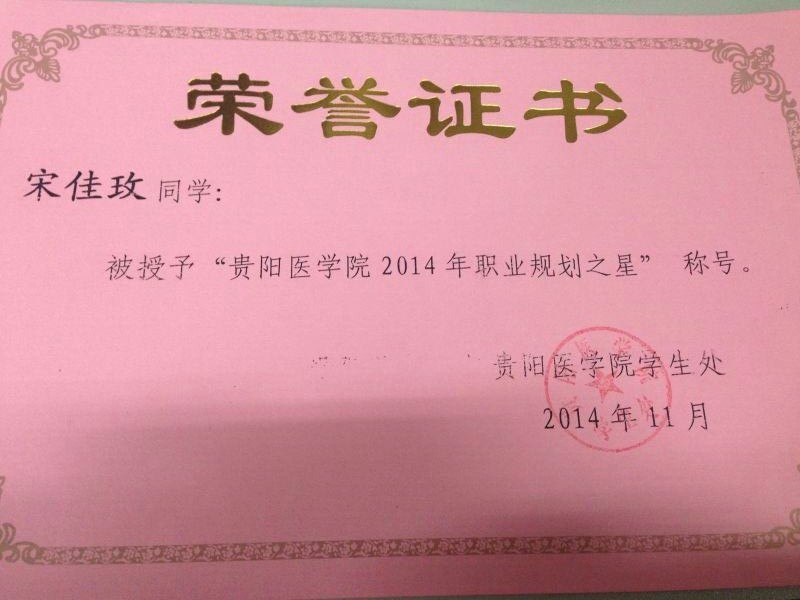 荣誉证书
宋佳玫同学:
被授予“贵阳医学院2014年职业规划之星” 称号。
贵阳医学院学生处
2014年11月